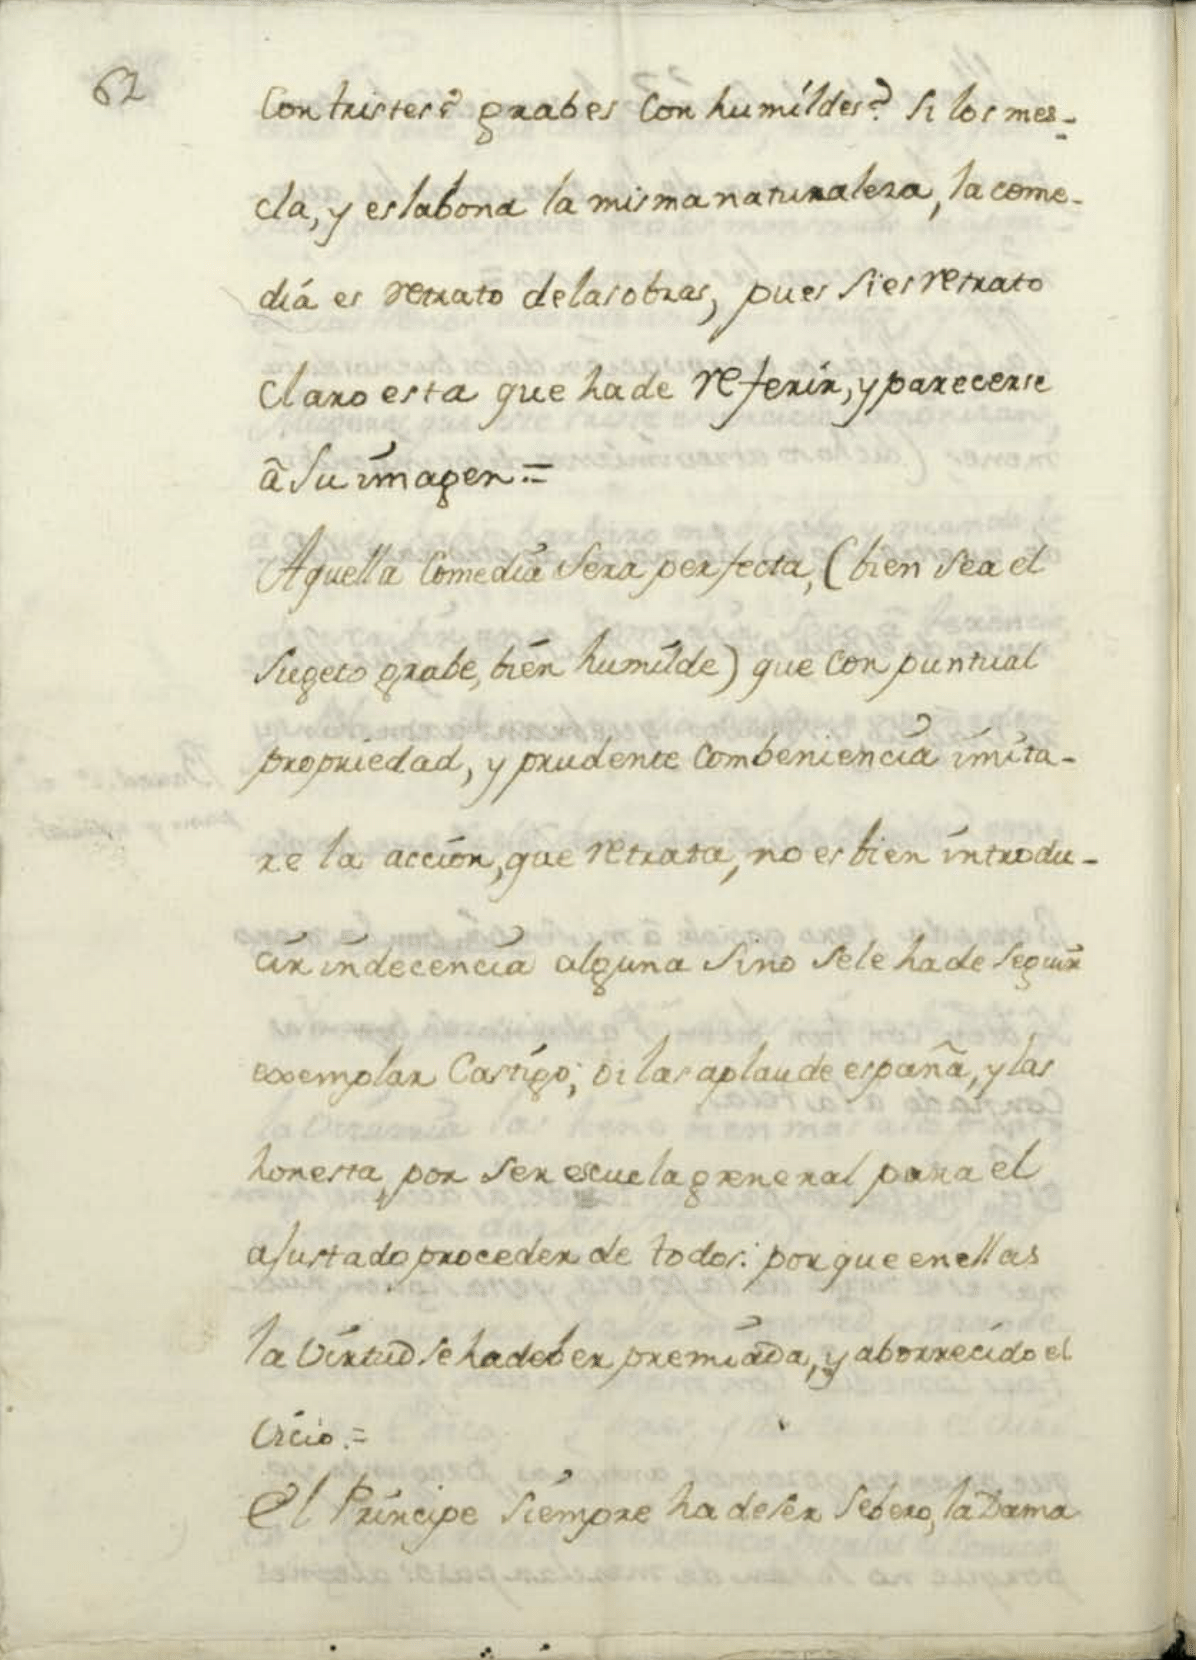 62
Con tristes? grabes Con humildes? si los mez-
cla, y eslabona la misma naturaleza, la come-
dia es retrato de las obras, pues si es retrato
Claro esta que ha de referir, y parecerse
â su imagen:=
Aquella Comedia sera perfecta, (bien sea el
sugeto grabe, bien humilde) que con puntual
propriedad, y prudente Combeniencia imita-
re la acción, que retrata, no es bien introdu-
cir indecencia alguna sino sele ha de seguir
exemplar Castigo; oi las aplaude españa, y las
honesta, por ser escuela general para el
ajustado proceder de todos: por que en ellas
la Virtud se ha de ber premiada, y aborrecido el
Vicio.=
El Principe siempre ha de ser sebero, la Dama